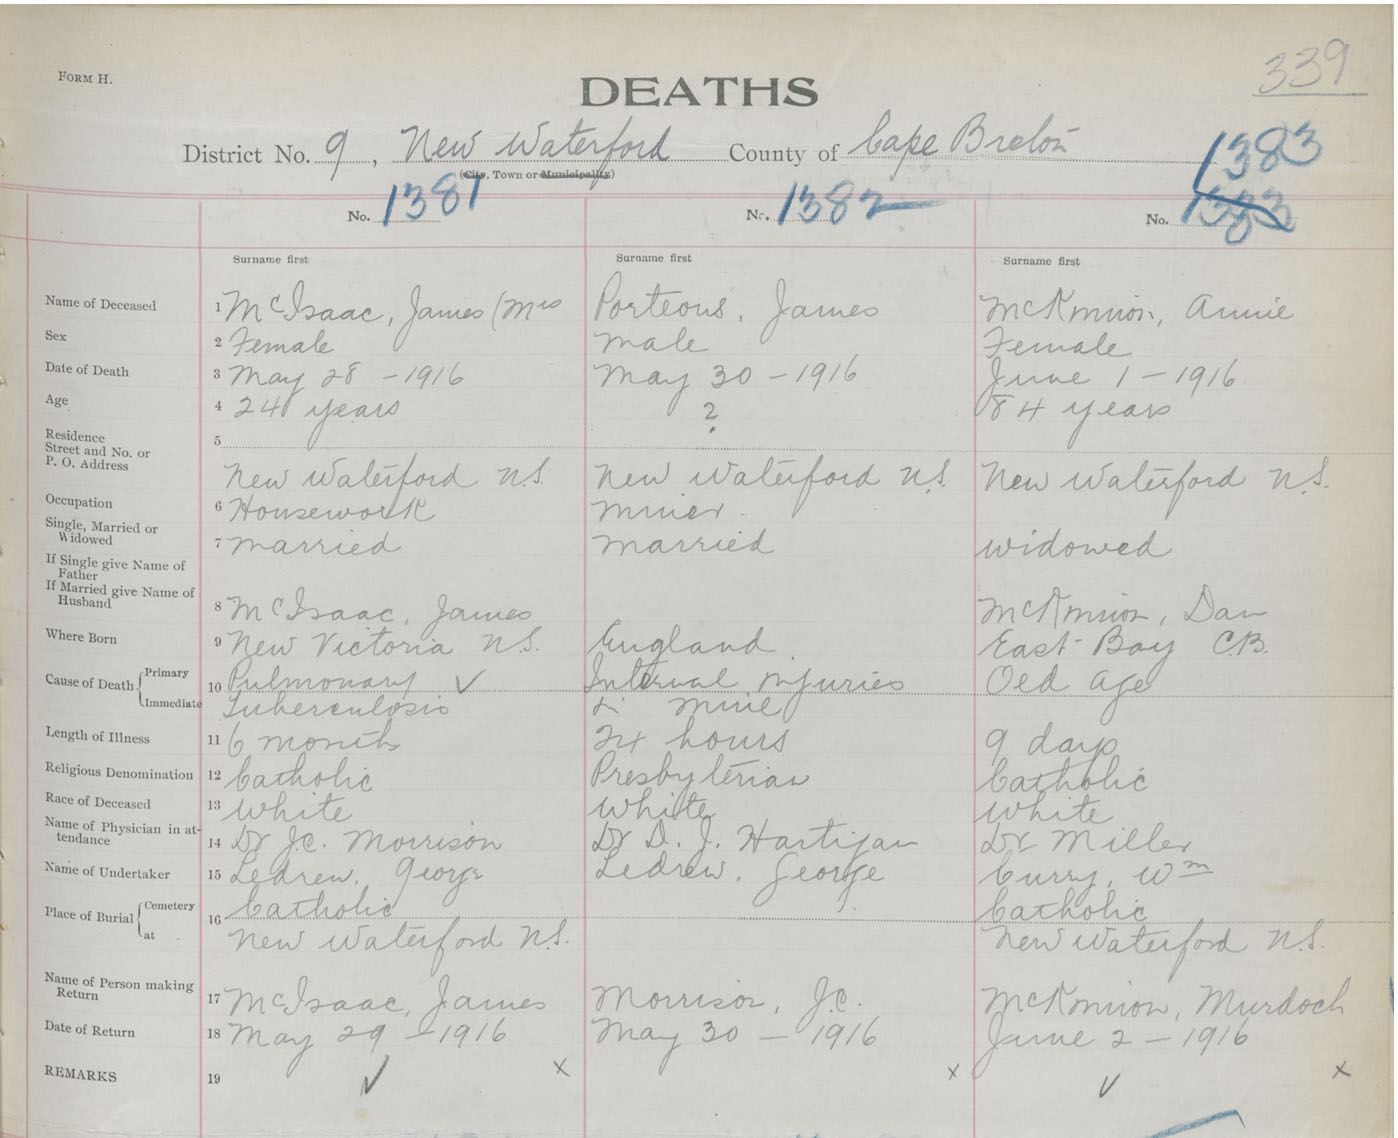 FORM H.
339
DEATHS
District No. 9, New Waterford County of Cape Breton
(City, Town or Municipality)
1383
No. 1381 No. 1382 No. 1383
Surname first Surname first Surname first
Name of Deceased 1 McIsaac, James (Mrs Porteous, James McKinnon, Annie
Sex 2 Female male Female
Date of Death 3 May 28 - 1916 May 30 - 1916 June 1 - 1916
Age 4 24 years ? 84 years
Residence
Street and No. or
P. O. Address 5
New Waterford N.S. New Waterford N.S. New Waterford N.S.
Occupation 6 Housework miner
Single, Married or
Widowed 7 married married widowed
If Single give Name of
Father
If Married give Name of
Husband 8 McIsaac, James McKinnon, Dan
Where Born 9 New Victoria N.S. England East Bay C.B.
Cause of Death Primary 10 Pulmonary ✓ Internal injuries Old age
Immediate Tuberculosis in mine
Length of Illness 11 6 months 24 hours 9 days
Religious Denomination 12 Catholic Presbyterian Catholic
Race of Deceased 13 White White White
Name of Physician in at-
tendance 14 Dr J.C. Morrison Dr D. J. Hartigan Dr Miller
Name of Undertaker 15 Ledrew, George Ledrew, George Curry, Wm
Place of Burial Cemetery 16 Catholic Catholic
at New Waterford N.S. New Waterford N.S.
Name of Person making
Return 17 McIsaac, James Morrison, J.C. McKinnon, Murdoch
Date of Return 18 May 29 - 1916 May 30 - 1916 June 2 - 1916
REMARKS 19 ✓ x x ✓ x